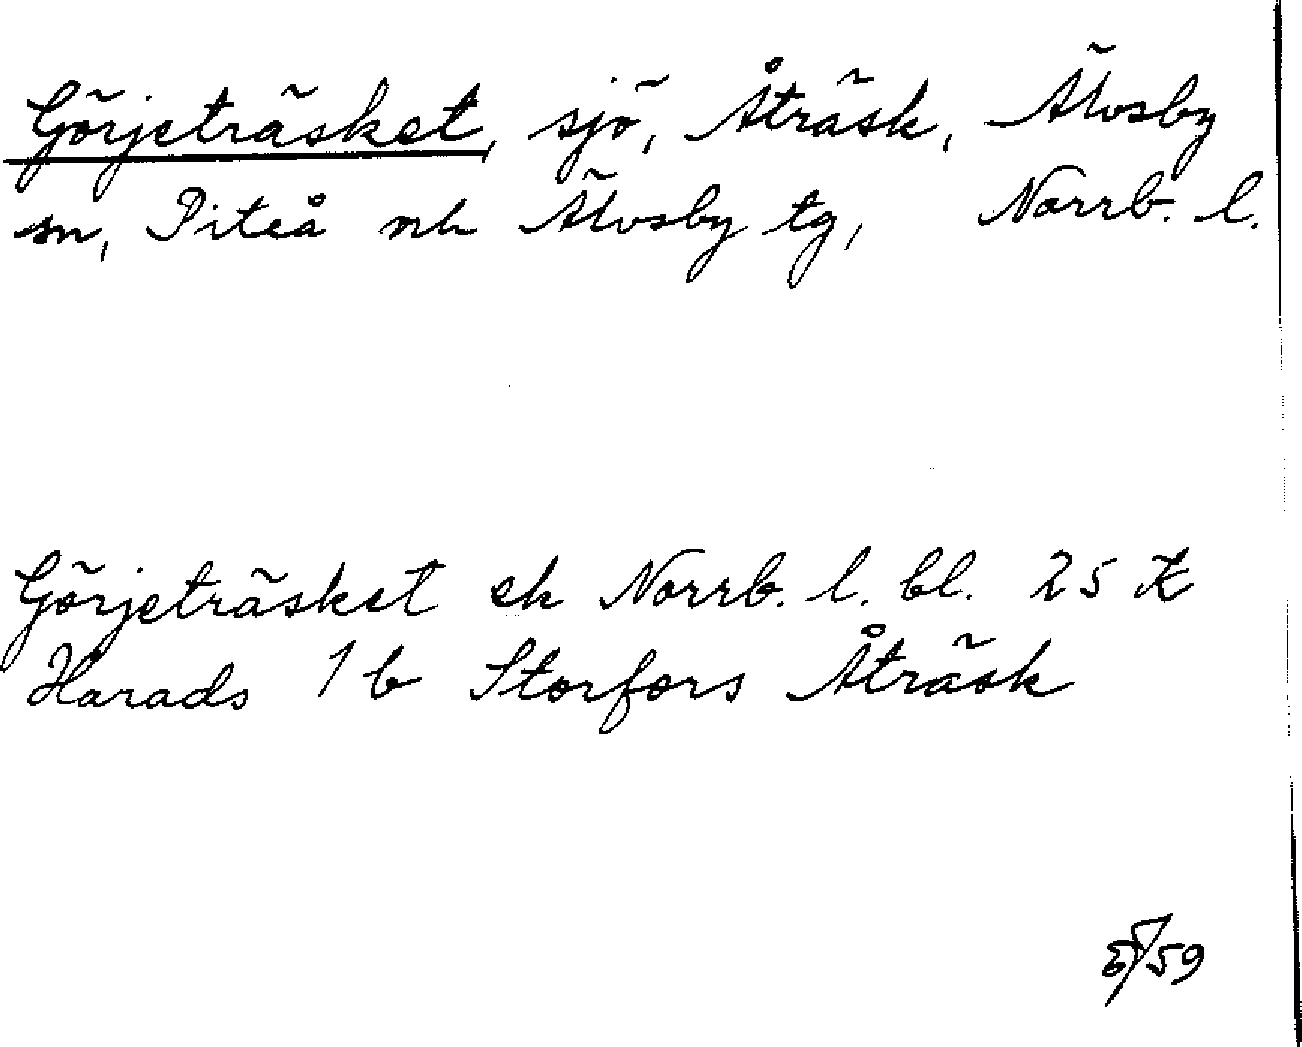 Görjeträsket, sjö, Åträsk, Älvsby
sn, Piteå nh Älvsby tg, Norrb. l.
Görjeträsket ek Norrb. l. bl. 25 K
Harads 1 b Storfors Åträsk
59